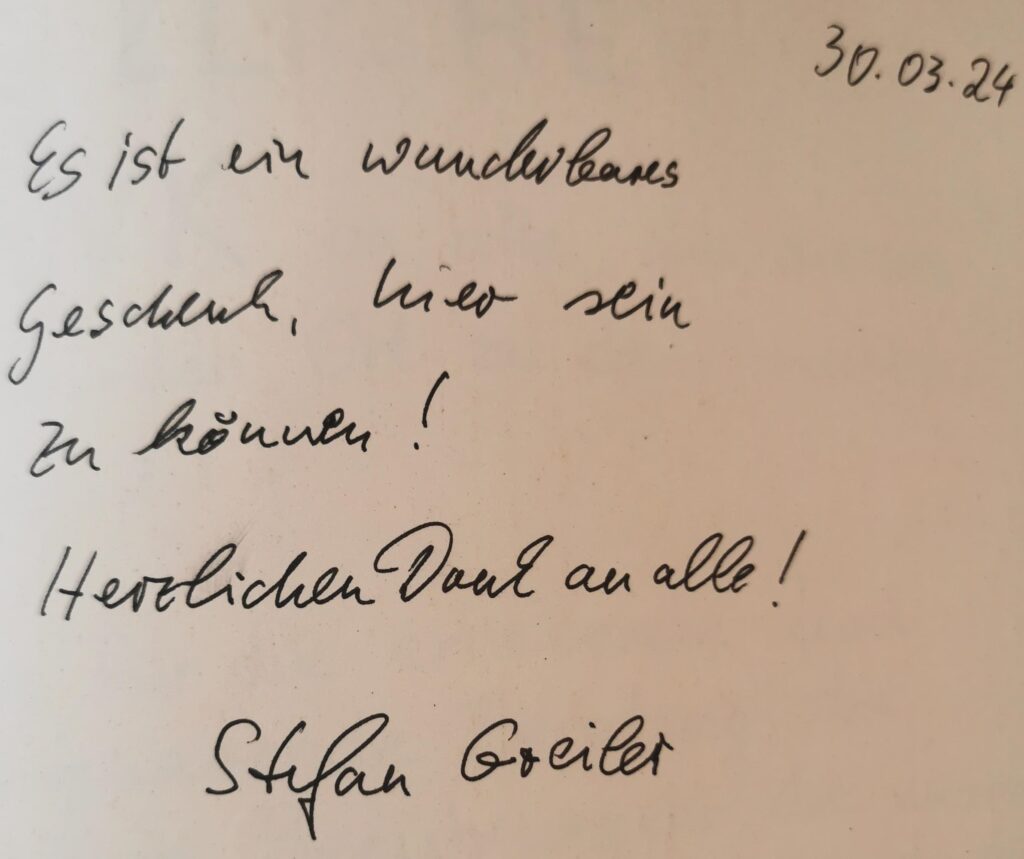 30.03.24
Es ist ein wunderbares
Geschenk, hier sein
zu können!
Herzlichen Dank an alle!
Stefan Greiler